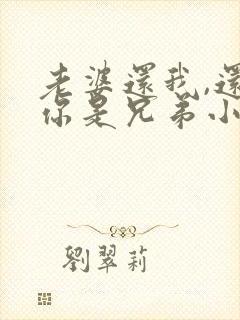 老婆還我,還
你是兄弟小
劉翠莉